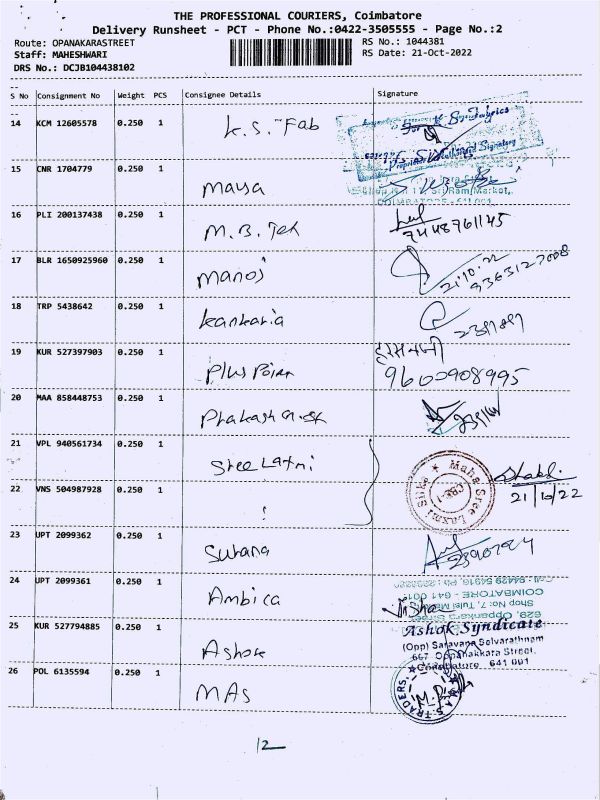 THE PROFESSIONAL COURIERS, Coimbatore
Delivery Runsheet - PCT - Phone No.:0422-3505555 - Page No.:2
Route: OPANAKARASTREET RS No.: 1044381
Staff: MAHESHWARI RS Date: 21-Oct-2022
DRS No.: DCJB104438102
S No Consignment No Weight PCS Consignee Details Signature
14 KCM 12605578 0.250 1 K.S. Fab
15 CNR 1704779 0.250 1 Maya
16 PLI 200137438 0.250 1 M.B. Tex
7448761145
17 BLR 1650925960 0.250 1 Manoj
21.10.22
9363127008
18 TRP 5438642 0.250 1 Kankaria
19 KUR 527397903 0.250 1 Plus Poinn
9600908995
20 MAA 858448753 0.250 1 Prakash
21 VPL 940561734 0.250 1 Sree Laxmi
Maha Sree Laxmi Silks
21/10/22
22 VNS 504987928 0.250 1
23 UPT 2099362 0.250 1 Surana
24 UPT 2099361 0.250 1 Ambica
COIMBATORE - 641 001
Shop No: 7, Tulsi
25 KUR 527794885 0.250 1 Ashok
Ashok Syndicate
(Opp) Saravana Selvarathnam
667, Oppanakkara Street,
Coimbatore 641 001
26 POL 6135594 0.250 1 MAS
TRADERS
12